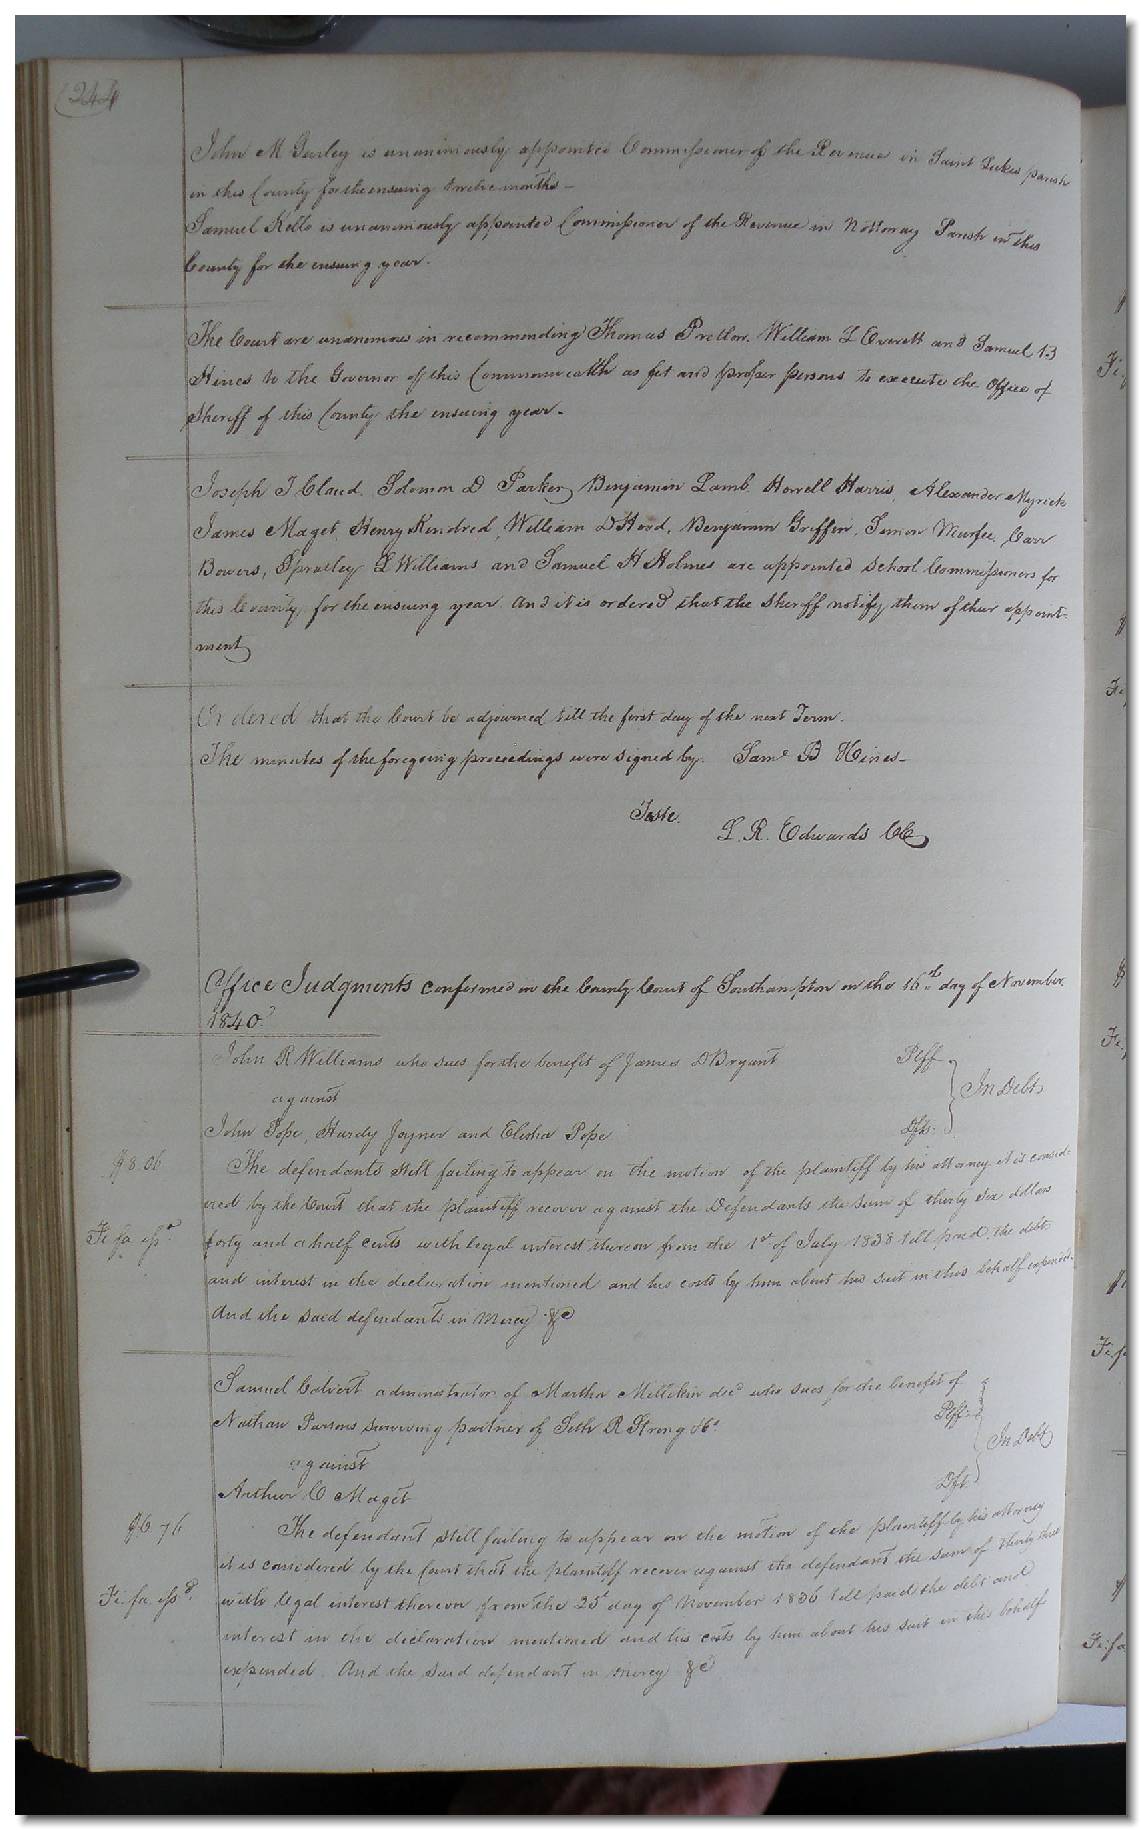 244
John M Gurley is unanimously appointed Commissioner of the Revenue in Saint Lukes parish
in this County for the ensuing twelve months -
Samuel Kello is unanimously appointed Commissioner of the Revenue in Nottoway Parish in this
County for the ensuing year.
The Court are unanimous in recommending Thomas Pretlow, William L Everett and Samuel B
Hines to the Governor of this Commonwealth as fit and proper persons to execute the Office of
Sheriff of this County the ensuing year.
Joseph T Claud, Solomon D Parker, Benjamin Lamb, Howell Harris, Alexander Myrick
James Maget, Henry Kindred, William D Hood, Benjamin Griffin, Simon Murfee, Carr
Bowers, Spratley L Williams and Samuel H Holmes are appointed School Commissioners for
this County, for the ensuing year. And it is ordered that the Sheriff notify them of their appoint-
ment
Ordered that the Court be adjourned till the first day of the next Term.
The minutes of the foregoing proceedings were signed by. Saml B Hines-
Teste.
L. R. Edwards CC
Office Judgments confirmed in the County Court of Southampton on the 16th day of November.
1840.
John R Williams who sues for the benefit of James D Bryant Plff
against In Debt
John Pope, Hardy Joyner and Elisha Pope Dfts.
$8.06 The defendants still failing to appear on the motion of the plaintiff by his attorney it is consid-
ered by the Court that the plaintiff recover against the Defendants the sum of thirty six dollars
Fi. fa. issd. forty and a half cents with legal interest thereon from the 1st of July 1838 till paid, the debt
and interest in the declaration mentioned and his costs by him about his suit in this behalf expended.
And the said defendants in Mercy &c
Samuel Calvert administrator of Martha Millikin decd who sues for the benefit of
Nathan Parsons surviving partner of Seth R Strong & Co. Plff
against In Debt
Arthur C Maget Dft.
$6.76 The defendant still failing to appear on the motion of the plaintiff by his attorney
it is considered by the Court that the plaintiff recover against the defendant the sum of thirty three
Fi. fa. issd. with legal interest thereon from the 25 day of November 1836 till paid the debt and
interest in the declaration mentioned and his costs by him about his suit in this behalf
expended. And the said defendant in mercy &c